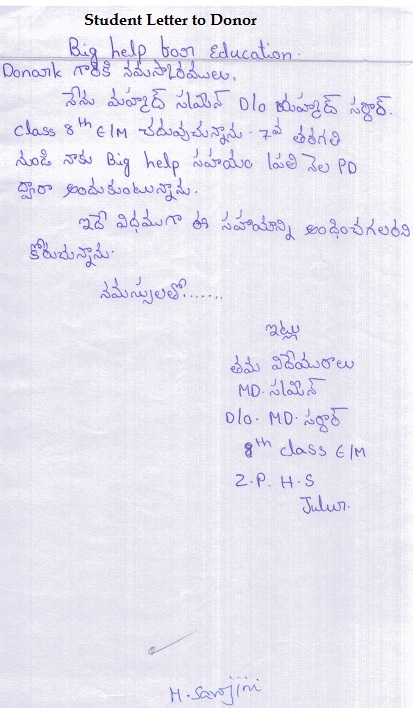 Student Letter to Donor
Big help for Education.
Donark గారికి నమస్కారములు,
నేను మహ్మద్ సమీన్ D/o మహ్మద్ సర్దార్.
Class 8th E/M చదువుచున్నాను. 7వ తరగతి
నుండి నాకు Big help సహాయం ప్రతి నెల PD
ద్వారా అందుకుంటున్నాను.
ఇదే విధముగా ఈ సహాయాన్ని అందించగలరని
కోరుచున్నాను.
నమస్సులతో.......
ఇట్లు
తమ విదేయురాలు
MD. సమీన్
D/o. MD. సర్దార్
8th class E/M
Z.P.H.S
Julur.
H. Sarojini